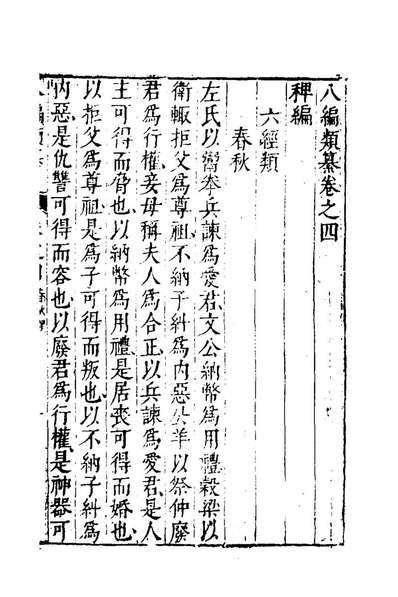 八編類纂卷之四
稗編
六經類
春秋
左氏以鬻拳兵諫爲愛君文公納幣爲用禮穀梁以
衛輙拒父爲尊祖不納子糾爲內惡公羊以祭仲廢
君爲行權妾母稱夫人爲合正以兵諫爲愛君是人
主可得而脅也以納幣爲用禮是居喪可得而婚也
以拒父爲尊祖是爲子可得而叛也以不納子糾爲
內惡是仇讐可得而容也以廢君爲行權是神器可